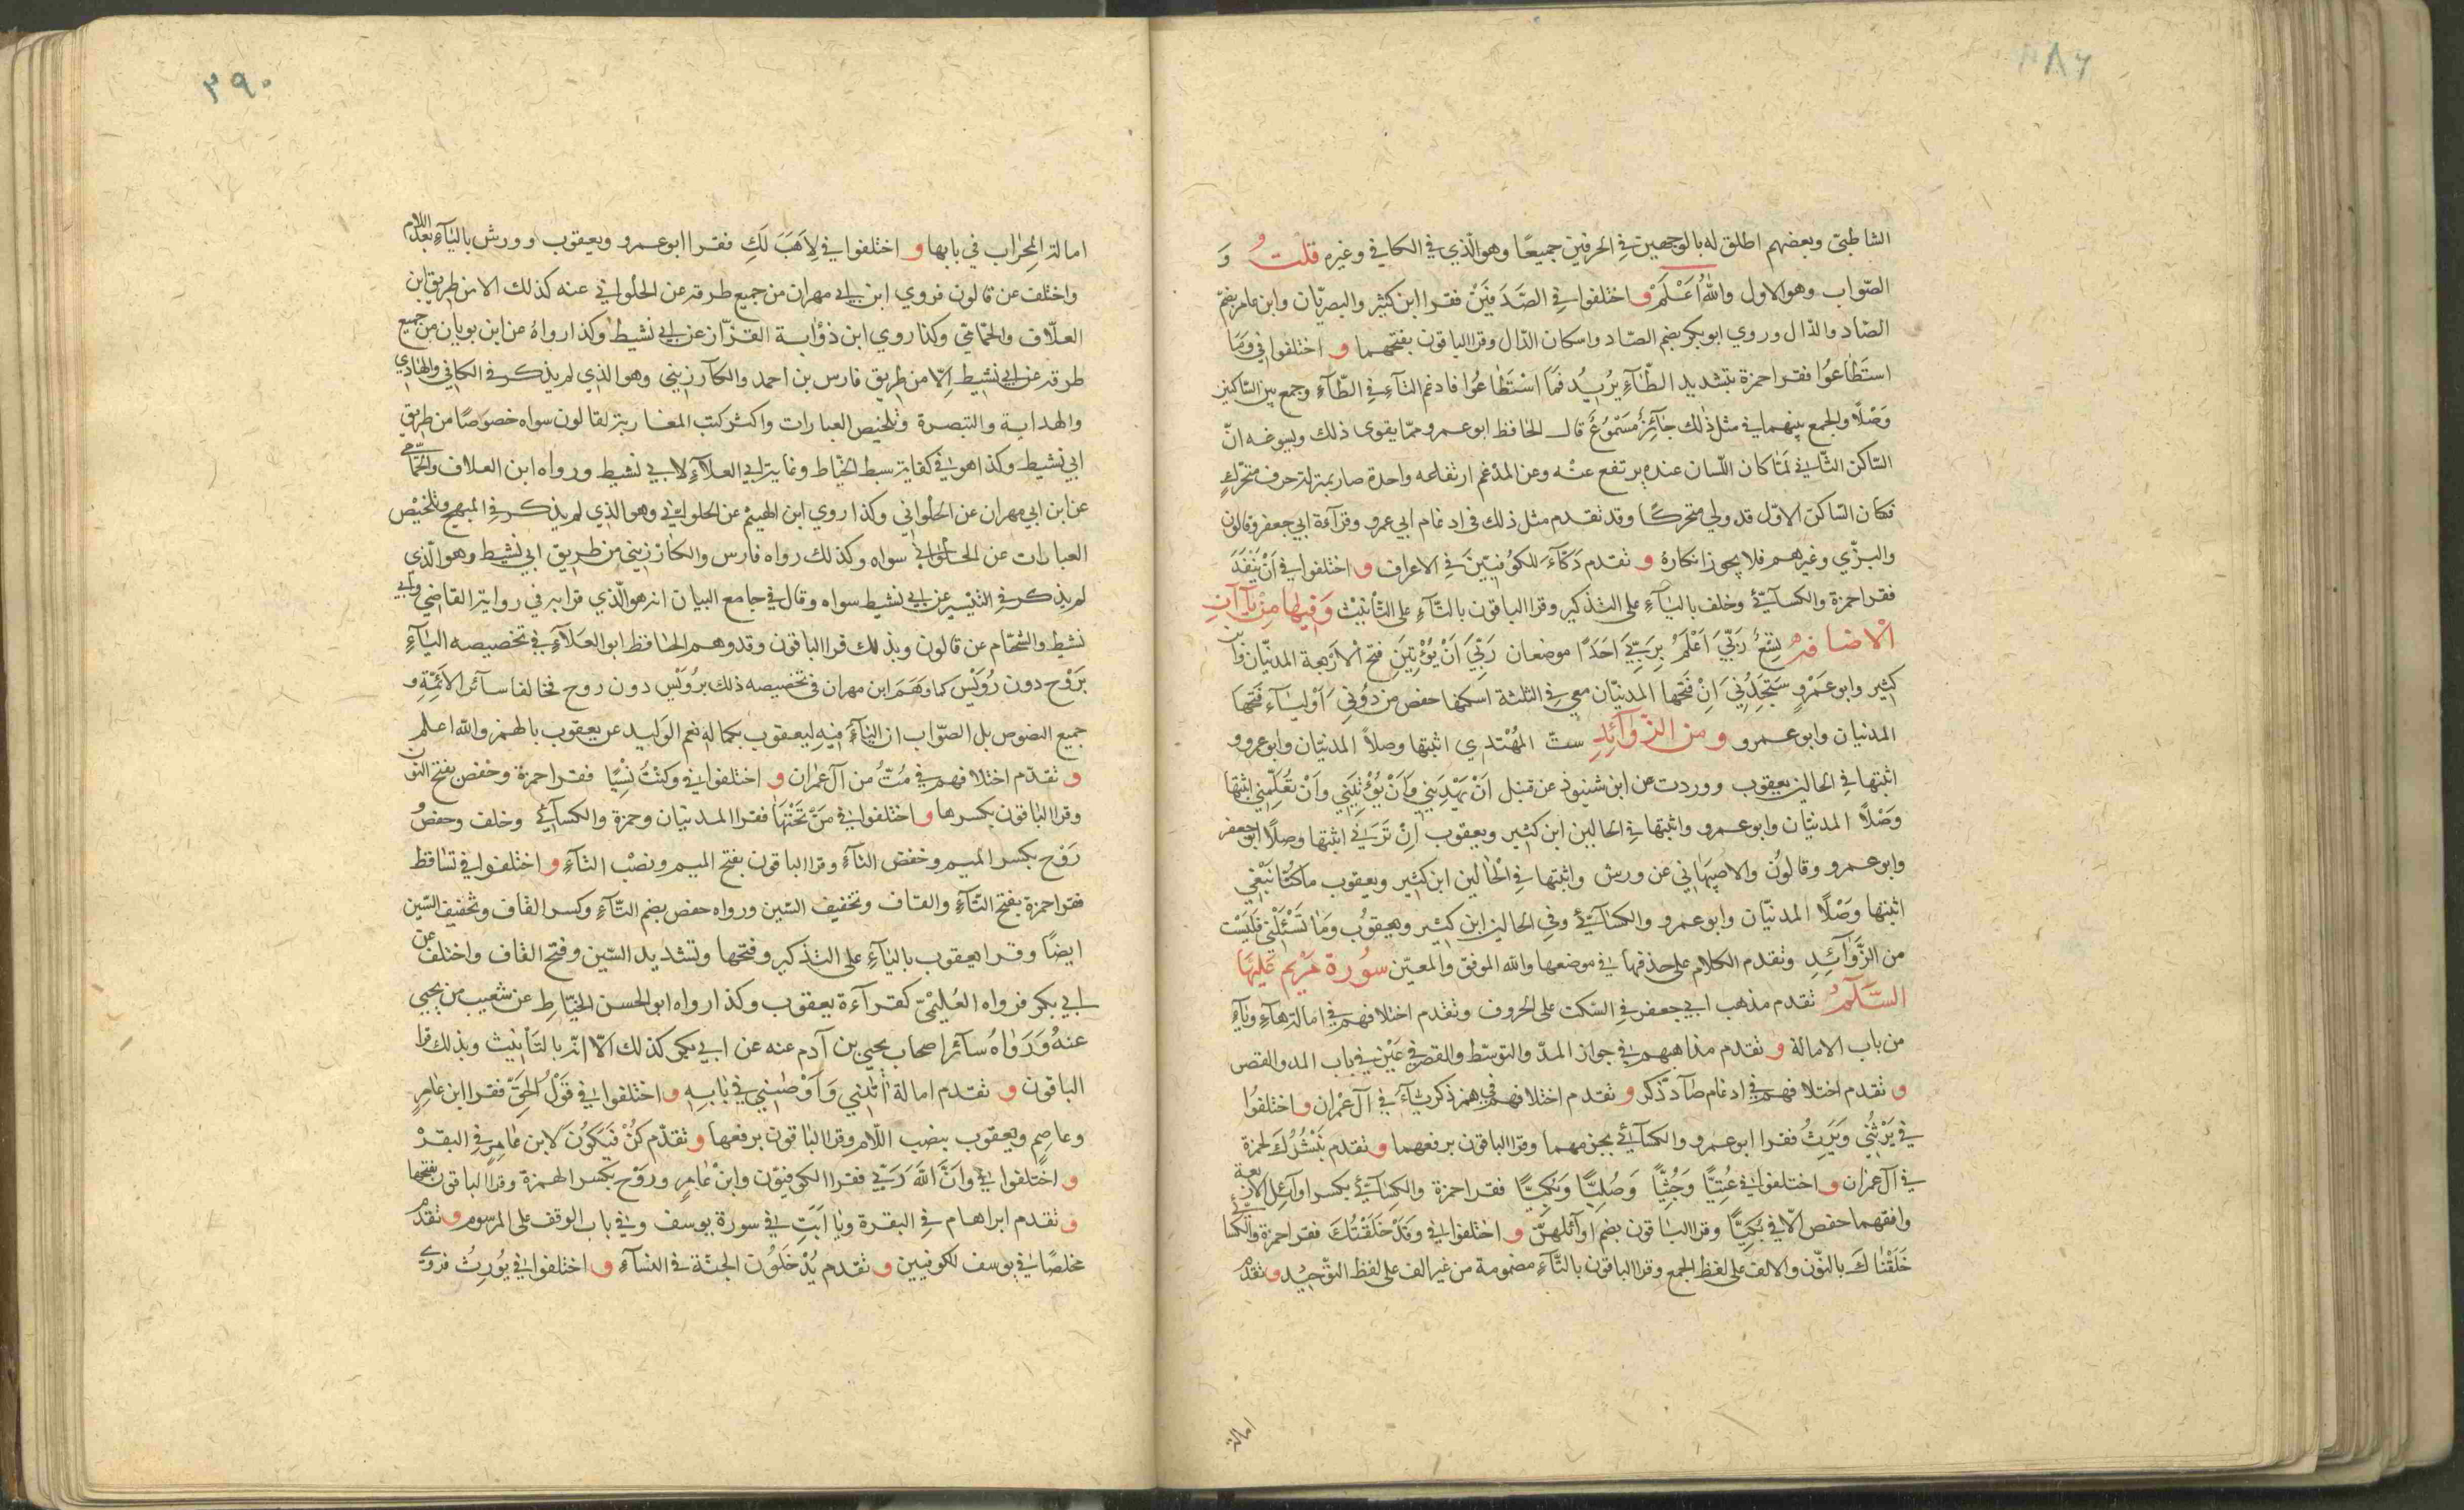 الشاطبيّ وبعضهم اطلق له بالوجهين في الحرفين جميعًا وهو الّذي في الكافي وغيره قلت وَ
الصّواب وهو الاول واللّٰه اَعْلَمْ و اختلفوا في الصَّدَفَيْنِ فقرا ابن كثير والبصريّان وابن عامر بضمّ
الصّاد والدّال وروي ابو بكر بضم الصّاد واسكان الدّال وقرا الباقون بفتحهما و اختلفوا في وَمَا
استَطَاعوُا فقرا حمزة بتشديد الطّآءِ يرُيدُ فَمَا اسْتَطَاعُوا فادغم التآءِ في الطّآءِ وجمع بين الساكنين
وَصْلًا والجمع بينهما في مثل ذٰلك جآئِزٌ مَسْمُوعٌ قال الحافظ ابو عمرو ممّا يقوى ذلك ويسوغه انّ
السّاكن الثّاني لمّا كان اللّسان عنده يرتفع عنْه وعن المدغم ارتفاعه واحدة صار بمنزلة حرف متحرّكٍ
فكان السّاكن الاوّل قد ولي متحركًا وقد تقدم مثل ذلك في ادغام ابي عمرو وقرآءة ابي جعفر وقالون
والبزّي وغيرهم فلا يجوز انكارهُ و تقدم دَكّآءَ للكوُفيّينَ في الاعراف و اختلفوا في اَنْ يَنْفَدَ
فقرا حمزة والكسآئيّ وخلف باليآءِ على التذكير وقرا الباقون بالتّآءِ على التّأنيث وَفيها مِنْ يَآاتِ
الْاضافة تِسْعٌ رَبّيَ اَعْلَمُ بِرَبِّيَ اَحَدًا موضعان رَبّيَ اَنْ يُؤْتِيَنِ فتح الْارَبعة المدنيّان وابن
كثير وابو عَمْرٍو سَتَجِدُنِيَ اِنْ فَتَحها المدنيّان معي في الثلثة اسكنها حفص من دوُنيَ اَوْليَآءَ فَتَحها
المدنيان وابو عمرو ومن الزّوآئدِ ستّ المهُتدي اثبتها وصلًا المدنيّان وابو عمرو و
اثبتها في الحالين يعقوب ووردت عن ابن شنبوذ عن قنبل اَنْ يَهْدِيَني وَاَنْ يُؤْتِيَني وَاَنْ تُعَلِّمَني اثبتها
وَصْلًا المدنيّان وابو عمرو واثبتها في الحالين ابن كثير ويعقوب اِنْ تَرَني اثبتها وصلًا ابو جعفر
وابو عمرو وقالوُن والاصبَهاني عن ورش واثبتها في الْحالين ابن كثير ويعقوب ما كنّا نَبْغي
اثبتها وَصْلًا المدنيّان وابو عمرو والكسَآئيّ وفي الحالين ابن كثير ويعقوُب وَمَا تَسْئَلْني فَلَيَسْت
من الزَّوَآئِدِ وتقدم الكلام على حذفها في موضعها واللّٰه الموفق والمعيّن سوُرة مَرْيم عَلَيهَا
السّلآمُ تقدم مذهب ابي جعفر في السّكت على الحروف وتقدم اختلافهم في امالة هآءِ ويَآءِ
من باب الامالة و تقدم مذاهبهم في جواز المدّ والتوسّط والقصر في عَيْن في باب المد والقصر
و تقدم اختلافهم في ادغام صٓاد ذكر و تقدم اختلافهم في همز ذكريّآءَ في آل عمْران و اختلفوُا
في يَرْثُني وَيَرِثُ فقرا ابو عمرو والكسَآئي بجزمهما وقرا الباقون برفعهما و تقدم نَبْشُرُكَ لحمزة
في آل عمران و اختلفوا في عُتِيًّا وَجُثِيًّا وَصُلِيًّا وَبُكِيًّا فقرا حمزة والكسَآئيّ بكسر اوآئل الاربعة
وافقهما حفص اِلّا في بُكِيًّا وقرا البَاقون بضم اوآئلهنّ و اختلفوا في وَقَدْ خَلَقْتُكَ فقرا حمزة والكسائيّ
خَلَقْنَاكَ بالنّون والالف على لفظ الجمع وقرا الباقون بالتّآءِ مضمومة من غير الف على لفظ التوّحيد و تقدم
امالة
٣٩٠
امالة المِحرَاب في بابها و اختلفوا في لِاَهَبَ لَكِ فقرا ابو عمرو ويعقوب وورش باليَآءِ بعد اللام
واختلف عن قالون فروي ابن ابي مهران من جميع طرقه عن الحلْواني عنه كذلك الا من طريق ابن
العلّاف والحمّاميّ وكذا روي ابن ذؤابة القزّاز عن ابي نشيط وكذا رواهُ عن ابن بويان من جميع
طرقه عن ابي نشيط اِلّا من طريق فارس بن احمد والكآرزيني وهو الذي لم يذكر في الكافي والهَادي
والهداية والتبصرة وتلخيص العبارات واكثر كتب المغاربة لقالون سواه خصوصًا من طريق
ابي نشيط وكذا هو في كفاية سبط الخيّاط وغاية ابي العلآءِ لابي نشيط ورواه ابن العلاف والحمّامي
عن ابن ابي مهران عن الحلْواني وكذا روي ابن الهيثم عن الحلواني وهو الذي لم يذكر في المبهج وتلخيْص
العبارات عن الحلواني سواه وكذلك رواه فارس والكارزيني من طريق ابي نشيط وهو الّذي
لم يذكر في التيْسير عن ابي نشيط سواه وقال في جامع البيان انه هو الّذي قرا به في رواية القاضي وابي
نشيط والشحّام عن قالون وبذلك قرا الباقون وقد وهم الحافظ ابو العَلآءِ في تخصيصه اليَآءِ
برَوْح دون رُوَيْس كما وَهَمَ ابن مهران في تخصيصه ذلك بروُيْس دون روح فخالفا سآئر الائمّة و
جميع النصوص بل الصّواب ان اليَآءَ فيهِ ليعقوب بكماله نعم الوَليد عن يعقوب بالهمز واللّٰه اعلم
و تقدّم اختلافهم في مُتُّ من آل عمْران و اختلفوا في وكُنْتُ نَسْيًا فقرا حمزة وحفص بفتح النوّن
وقرا البَاقون بكسرها و اختلفوا في مَنْ تَحْتَهَا فقرا المدنيان وحمزة والكسآئي وخلف وحفصُ و
رَوْح بكسر الميم وخفض التآءِ وقرا الباقون بفتح الميم ونصْب التآءِ و اختلفوا في تسَاقط
فقرا حمزة بفتح التّآءِ والقاف وتخفيف السّين ورواه حفص بضم التّآءِ وكسر القاف وتخفيف السّين
ايضًا وقرا يعقوب باليَآءِ على التذكير وفتحها وتشديد السّين وفتح القاف واختلف عن
ابي بكر فرواه العُليْميّ كقرآءة يعقوب وكذا رواه ابو الحسن الخيّاطِ عن شعيب من يحيي
عنهُ وَرَوَاهُ سآئر اصحاب يحيي بن آدم عنه عن ابي بكر كذلك الّا انّه بالتَأنيث وبذلك قرا
الباقون و تقدم امالة اٰتٰنِيَ وَاَوْصٰنِي في بَابهِ و اختلفوا في قَوْلُ الحَقّ فقرا ابن عامِرٍ
وعاصِمٍ ويعقوب بنصب اللّام وقرا البَاقون برفعها و تقدّم كُنْ فَيَكُوُنَ لابن عَامرٍ في البقرْ
و اختلفوا في وَانَّ اللّٰهَ رَبّي فقرا الكوفيّون وابن عَامرٍ ورَوْح بكسر الهمزة وقرا الباقون بفتحها
و تقدم ابراهام في البقرة ويَا اَبَتِ في سورة يوسف وفي باب الوقف على المرسوم و تقدم
مخلصًا في يوسف للكوفيين و تقدم يُدْخَلوُن الجنّة في النسآءِ و اختلفوا في نُورِثُ فروي